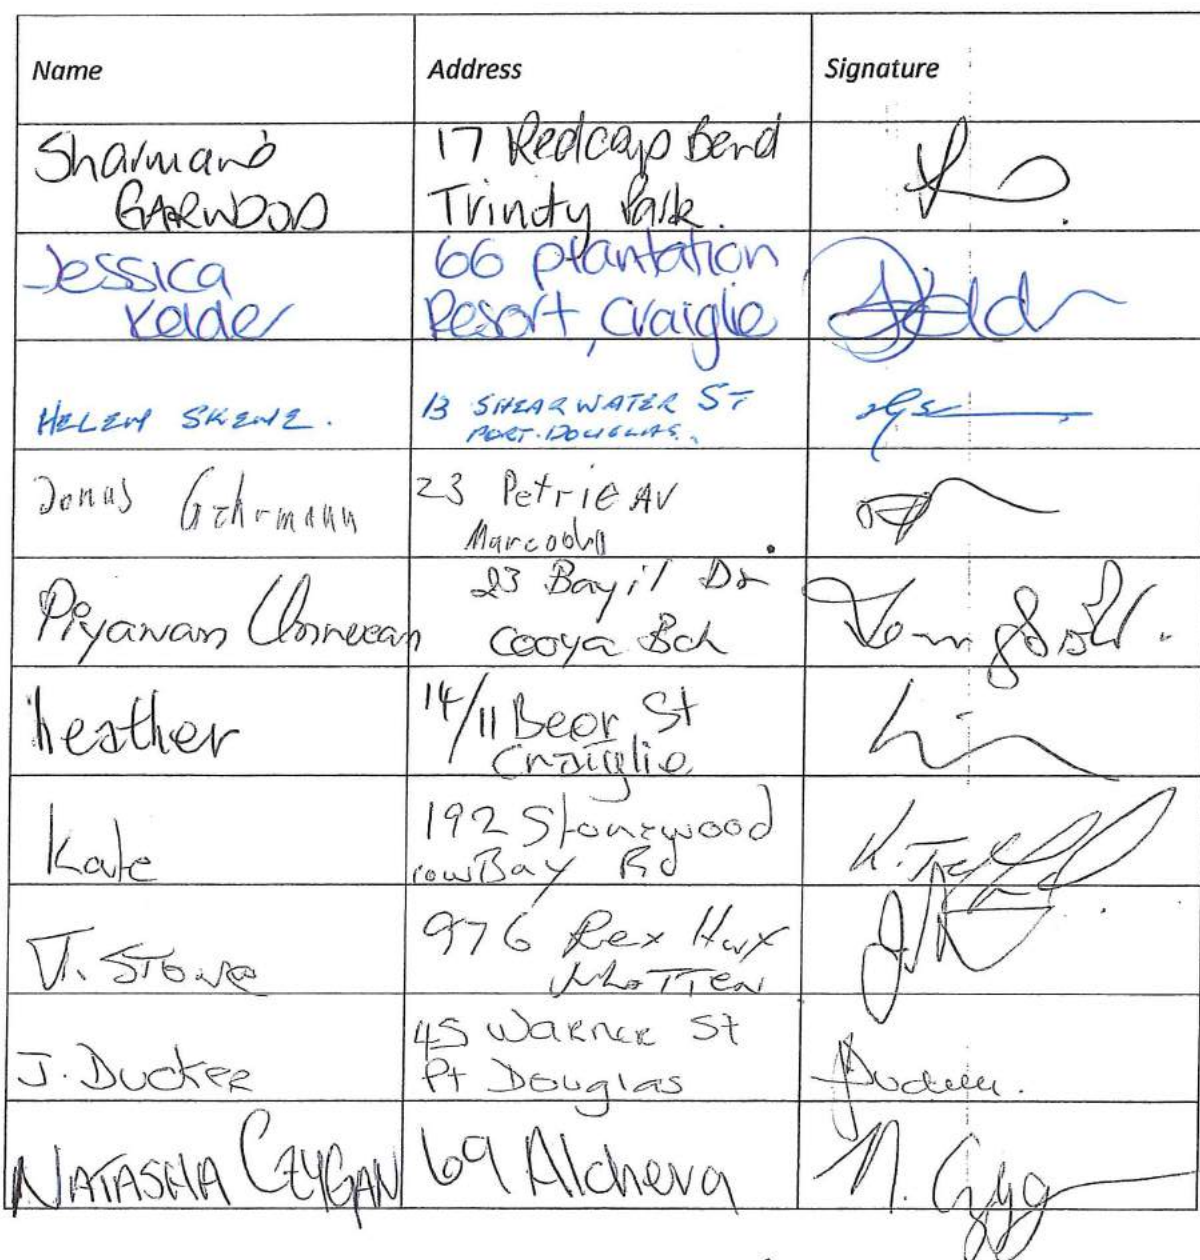 Name Address Signature
Sharmane 17 Redcaps Bend
GARWOOD Trinity Park.
Jessica 66 plantation
Kelder Resort, Craiglie
HELEN SKENE. 13 SHEARWATER ST
PORT DOUGLAS.
Jonas Gehrmann 23 Petrie AV
Marcoola
Piyawan 23 Bayil Dr
Cooya Bch
heather 14/11 Beor St
Craiglie
Kate 192 Stonewood
cowBay Rd
J. STONE 976 Rex Hwy
J. Ducker 45 Warner St
Pt Douglas
NATASHA CZYGAN 69 Alchera N. Czyg